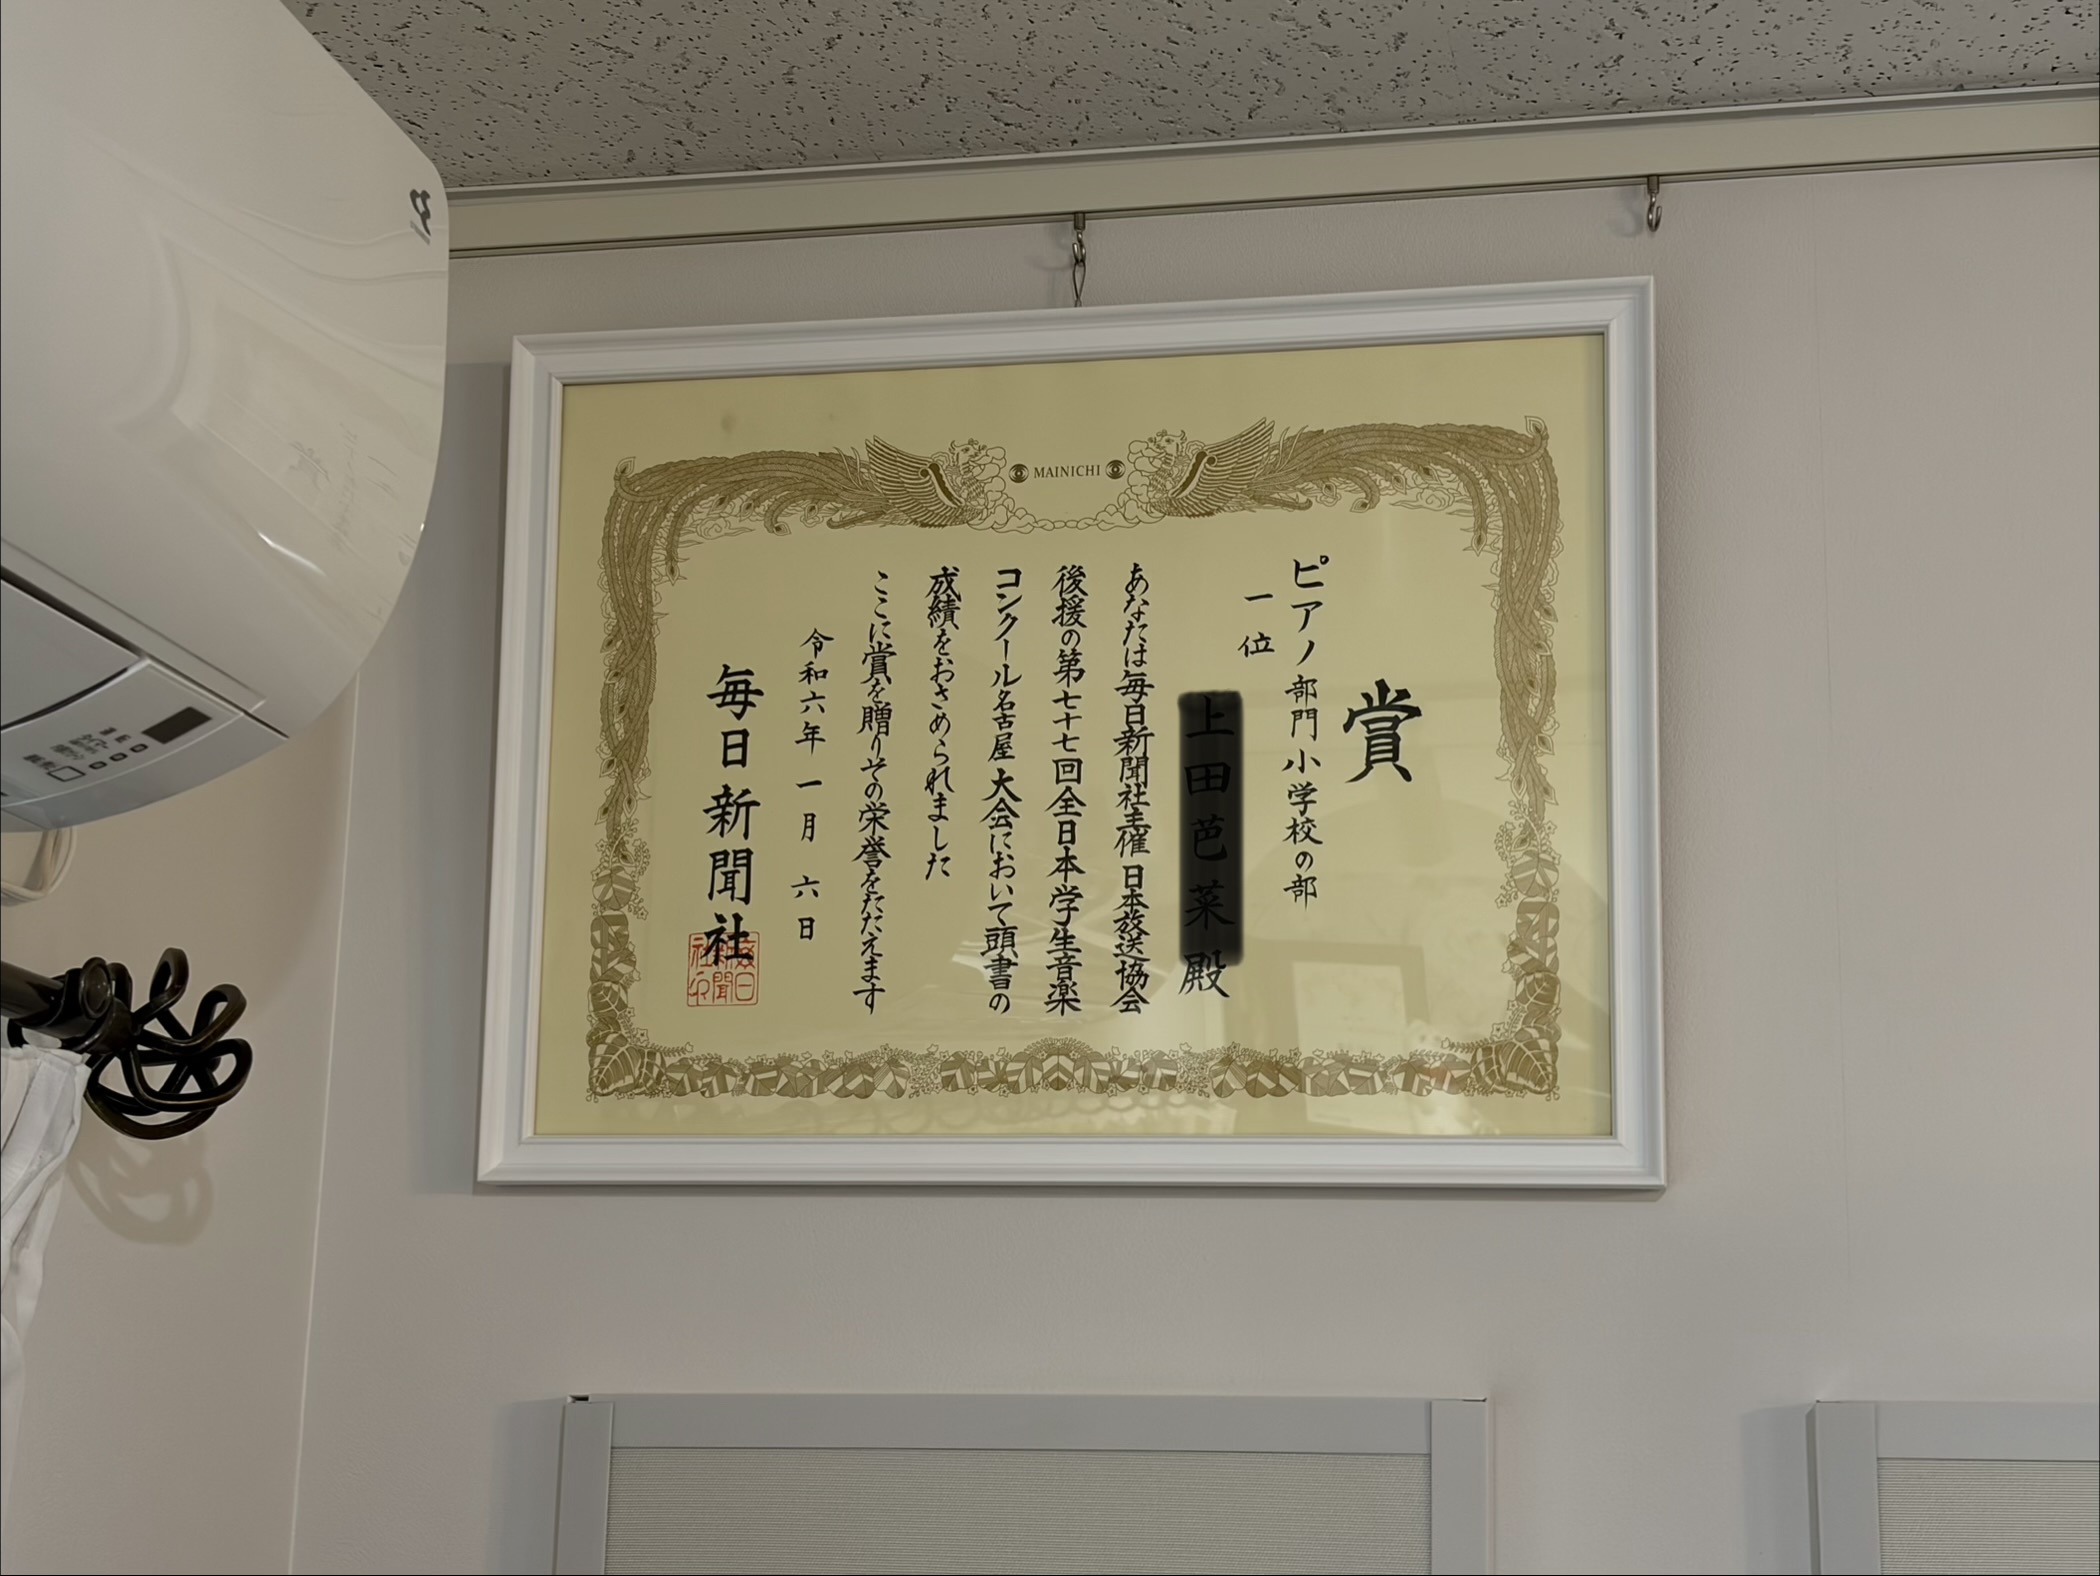 MAINICHI
賞
ピアノ部門小学校の部
一位
殿
あなたは毎日新聞社主催日本放送協会
後援の第七十七回全日本学生音楽
コンクール名古屋大会において頭書の
成績をおさめられました
ここに賞を贈りその栄誉をたたえます
令和六年一月六日
毎日新聞社
毎日新聞社印